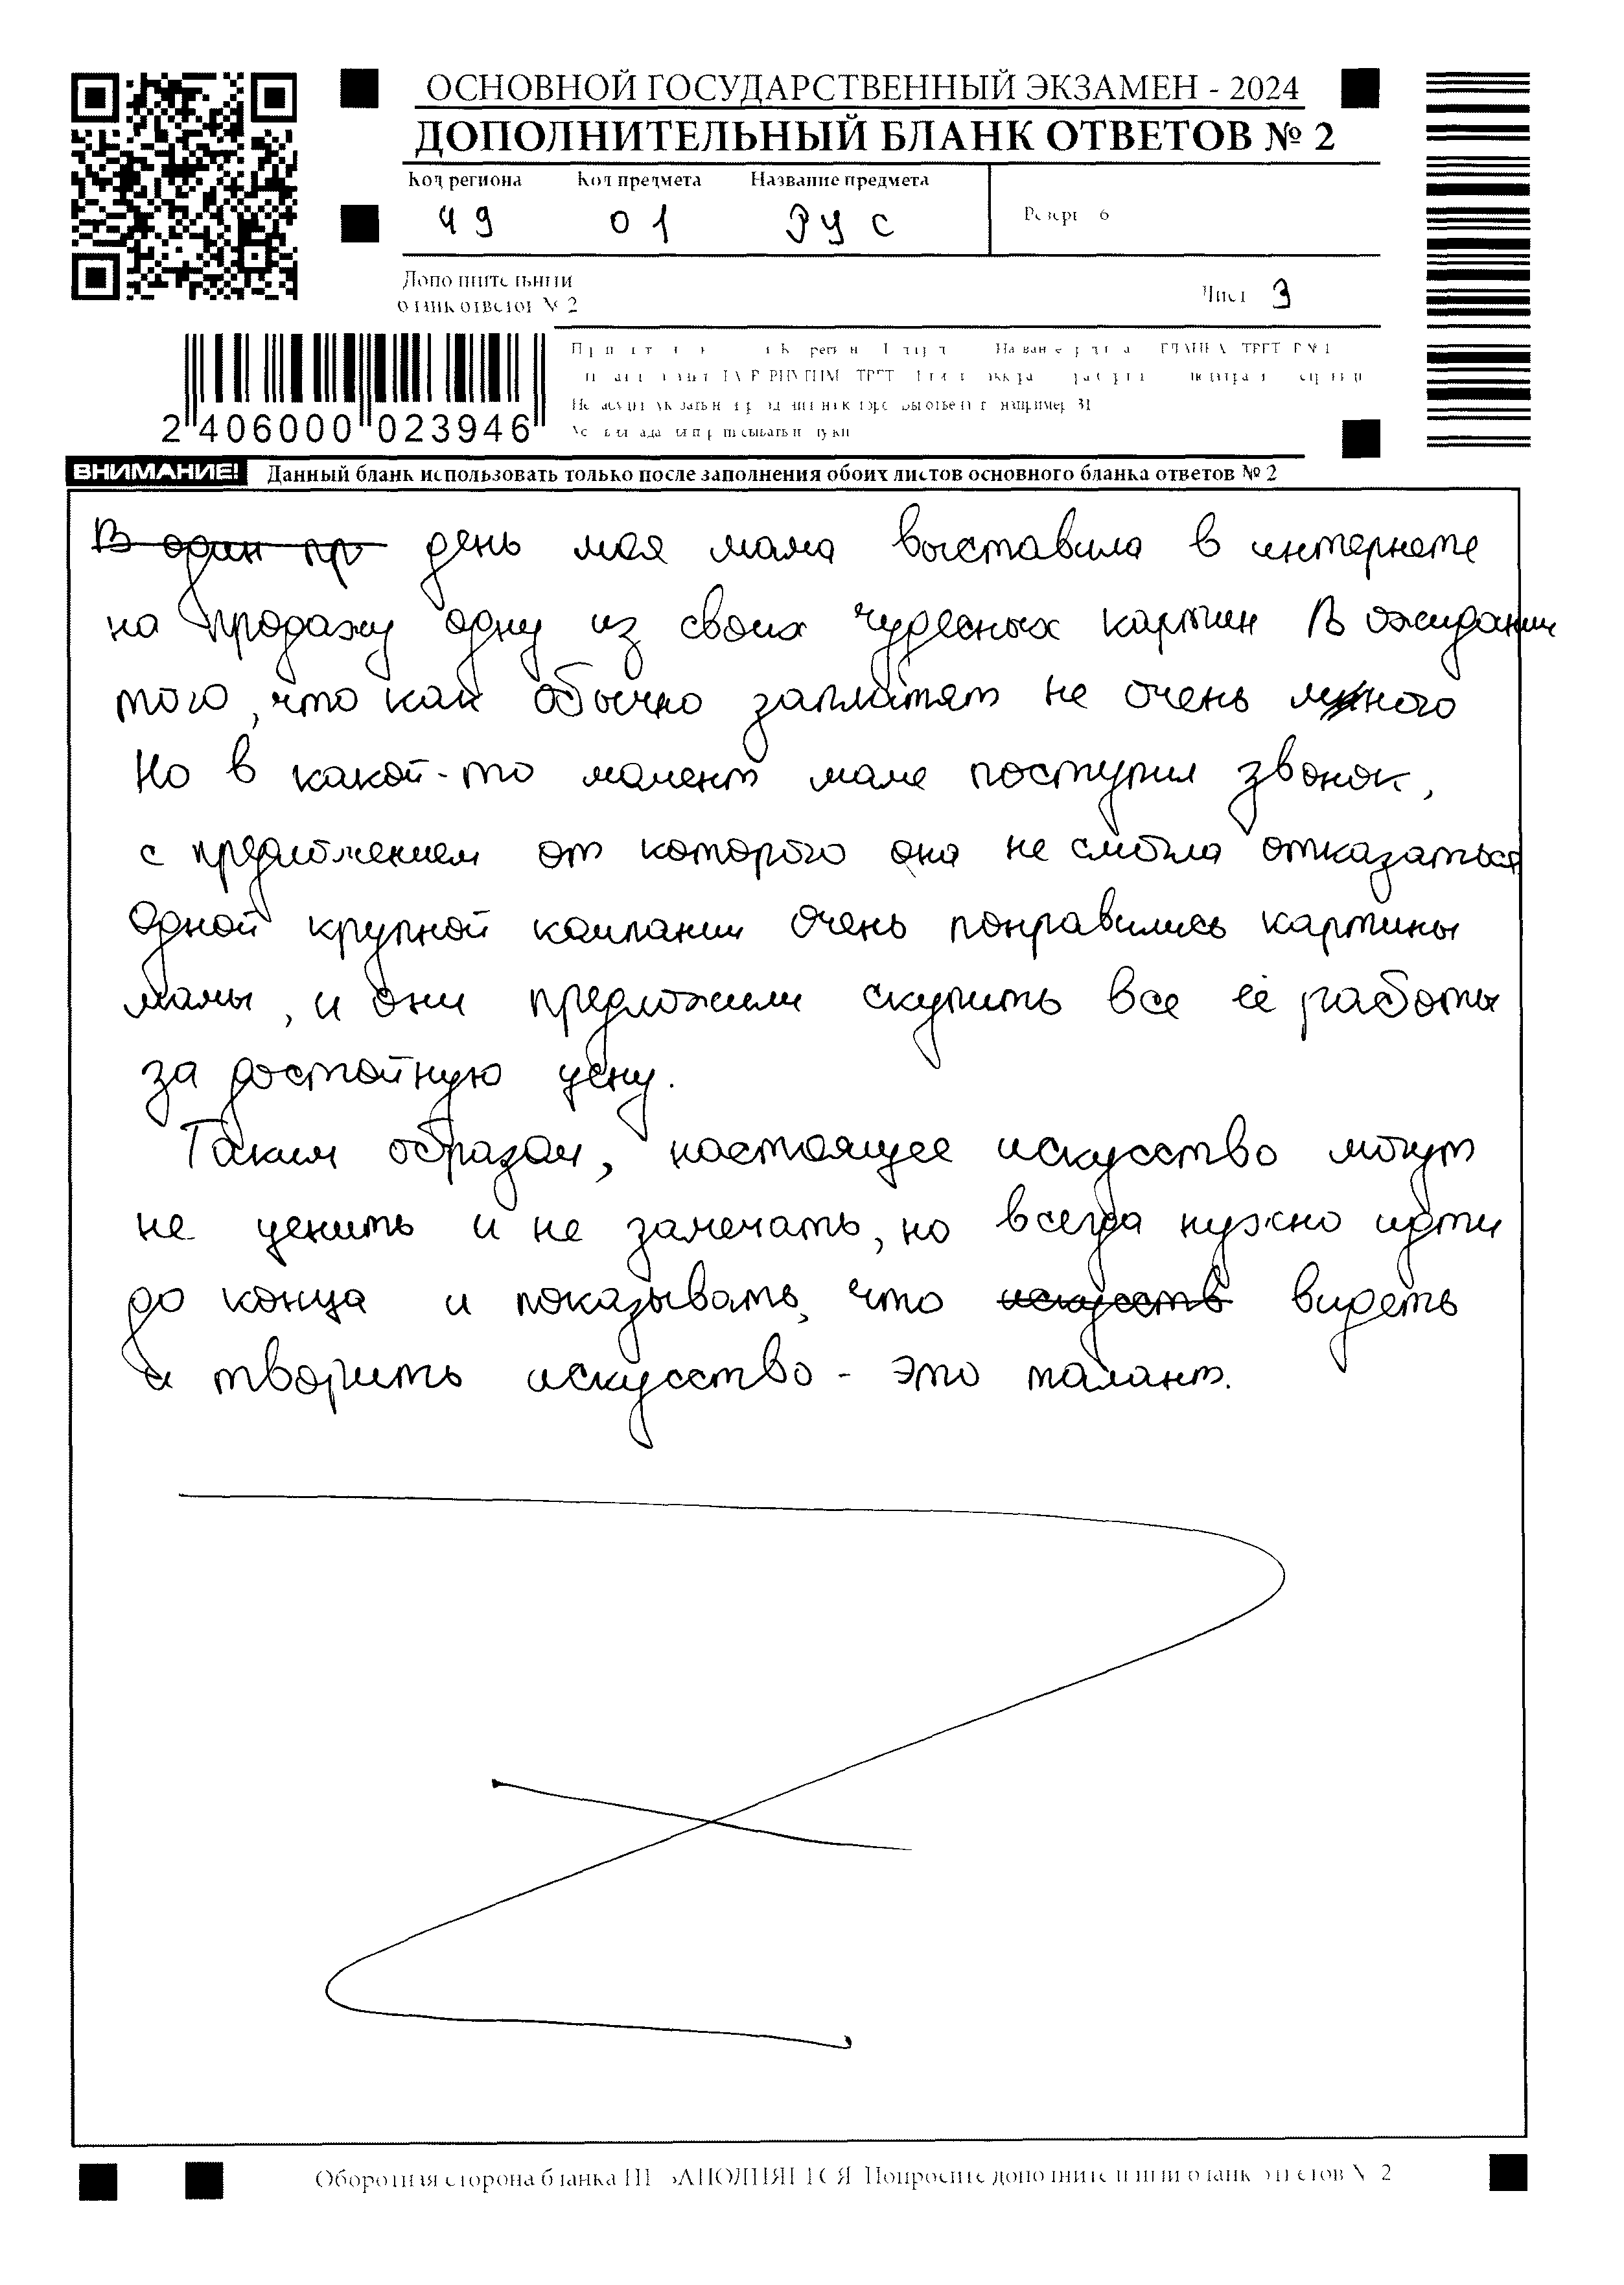 ОСНОВНОЙ ГОСУДАРСТВЕННЫЙ ЭКЗАМЕН - 2024
ДОПОЛНИТЕЛЬНЫЙ БЛАНК ОТВЕТОВ № 2
Код региона Код предмета Название предмета
49 01 РУС
Резерв 6
Дополнительный
бланк ответов № 2
Лист 3
2 406000 023946
ВНИМАНИЕ! Данный бланк использовать только после заполнения обоих листов основного бланка ответов № 2
В один пр день моя мама выставила в интернете
на продажу одну из своих чудесных картин В ожидании
того, что как обычно заплатят не очень много
Но в какой-то момент маме поступил звонок,
с предложением от которого она не смогла отказаться
Одной крупной компании очень понравились картины
мамы, и они предложили скупить все её работы
за достойную цену.
Таким образом, настоящее искусство могут
не ценить и не замечать, но всегда нужно идти
до конца и показывать, что искусств видеть
и творить искусство - это талант.
Оборотная сторона бланка НЕ ЗАПОЛНЯЕТСЯ Попросите дополнительный бланк ответов № 2